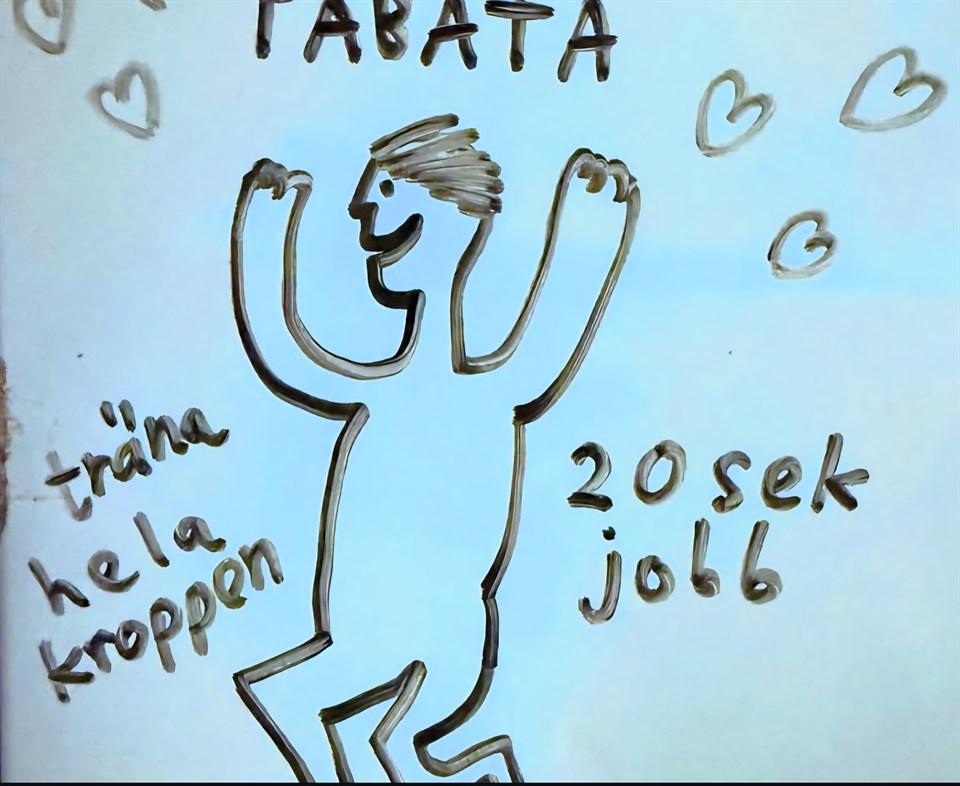 TABATA
träna
hela
kroppen
20 sek
jobb